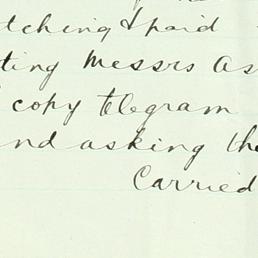 tching & paid
ting Messrs As
copy telegram
nd asking the
Carried